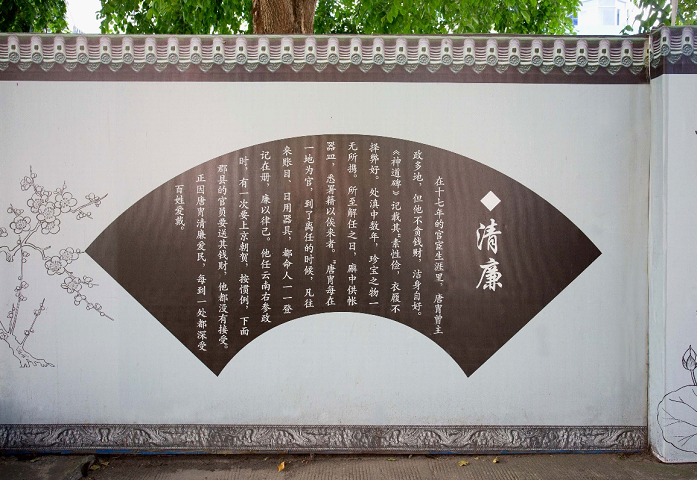 清廉
在十七年的官宦生涯里，唐胄曾主
政多地，但他不贪钱财，洁身自好。
《神道碑》记载其“素性俭，衣履不
择弊好。处滇中数年，珍宝之物一
无所携。所至解任之日，廨中供帐
器皿，悉署籍以俟来者。”唐胄每在
一地为官，到了离任的时候，凡往
来账目、日用器具，都命人一一登
记在册，廉以律己。他任云南右参政
时，有一次要上京朝贺，按惯例，下面
郡县的官员要送其钱财，他都没有接受。
正因唐胄清廉爱民，每到一处都深受
百姓爱戴。